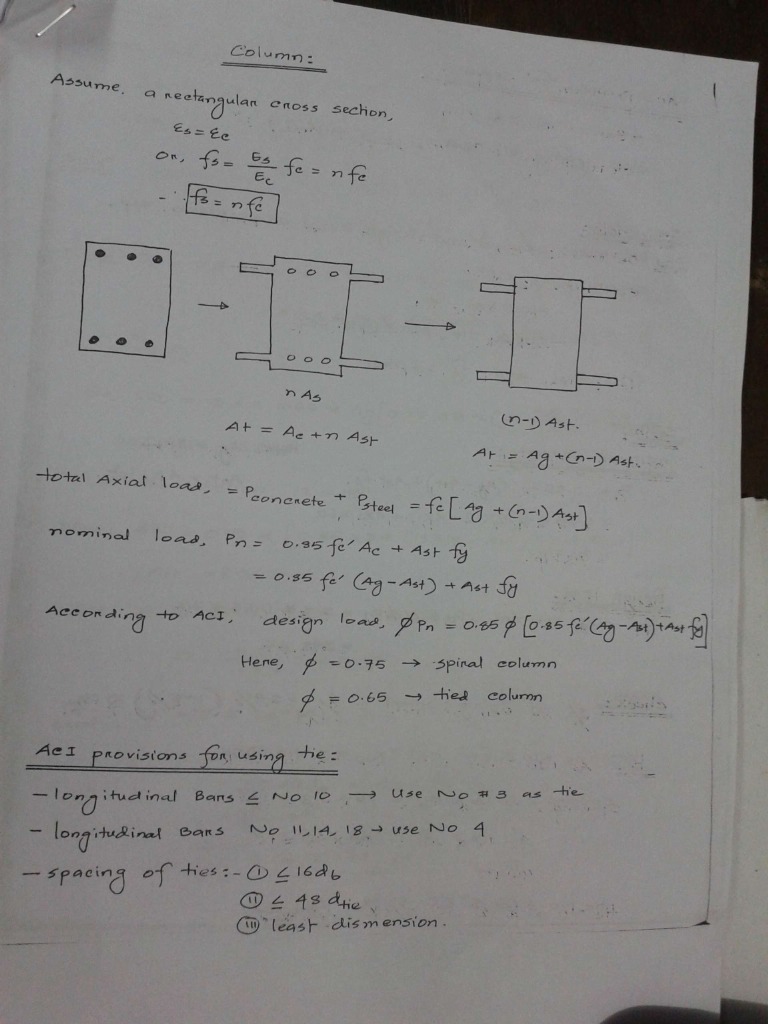 1
Column:
Assume, a rectangular cross section,
εs = εc
or, fs = Es/Ec fc = n fc
∴ fs = n fc
n As
At = Ac + n Ast
(n-1) Ast.
At = Ag + (n-1) Ast.
total Axial load, = Pconcrete + Psteel = fc [Ag + (n-1) Ast]
nominal load, Pn = 0.85 fc' Ac + Ast fy
= 0.85 fc' (Ag - Ast) + Ast fy
According to ACI, design load, φPn = 0.85 φ [0.85 fc' (Ag - Ast) + Ast fy]
Here, φ = 0.75 → spiral column
φ = 0.65 → tied column
ACI provisions for using tie:
- longitudinal Bars ≤ No 10 → Use No # 3 as tie
- longitudinal Bars No 11, 14, 18 → use No 4
- spacing of ties:- (i) ≤ 16db
(ii) ≤ 48 dtie
(iii) least dismension.